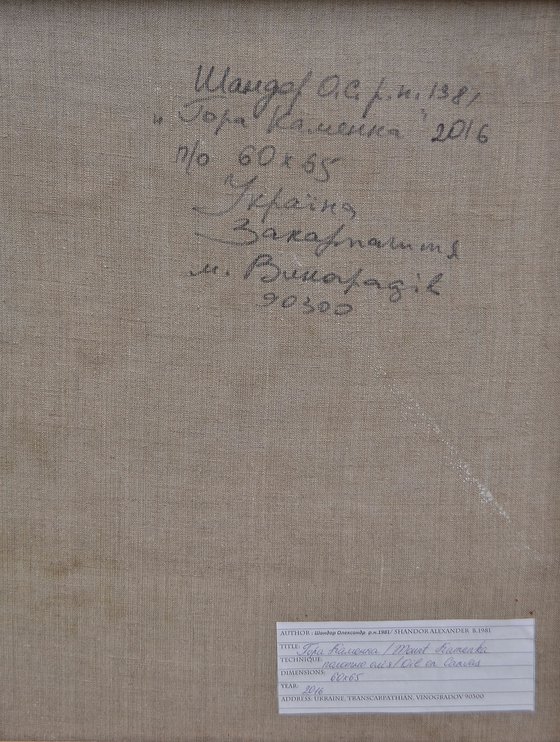 Шандор О.С. р.н. 1981
"Гора Каменка" 2016
п/о 60х65
Україна
Закарпаття
м. Виноградів
90300
AUTHOR : Шандор Олександр р.н.1981/ SHANDOR ALEXANDER B.1981
TITLE: Гора Каменка / Mount Kamenka
TECHNIQUE: полотно олія / Oil on Canvas
DIMENSIONS: 60x65
YEAR: 2016
ADDRESS: UKRAINE, TRANSCARPATHIAN, VINOGRADOV 90300